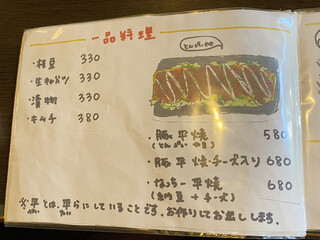 一品料理
とんぺい焼
・枝豆 330
・生キャベツ 330
・漬物 330
・キムチ 380
・豚平焼 580
(とんぺい焼き)
・豚平焼・チーズ入り 680
・なっちー平焼 680
(納豆 + チーズ)
平とは、平らにしていることです。お作りしてお出しします。